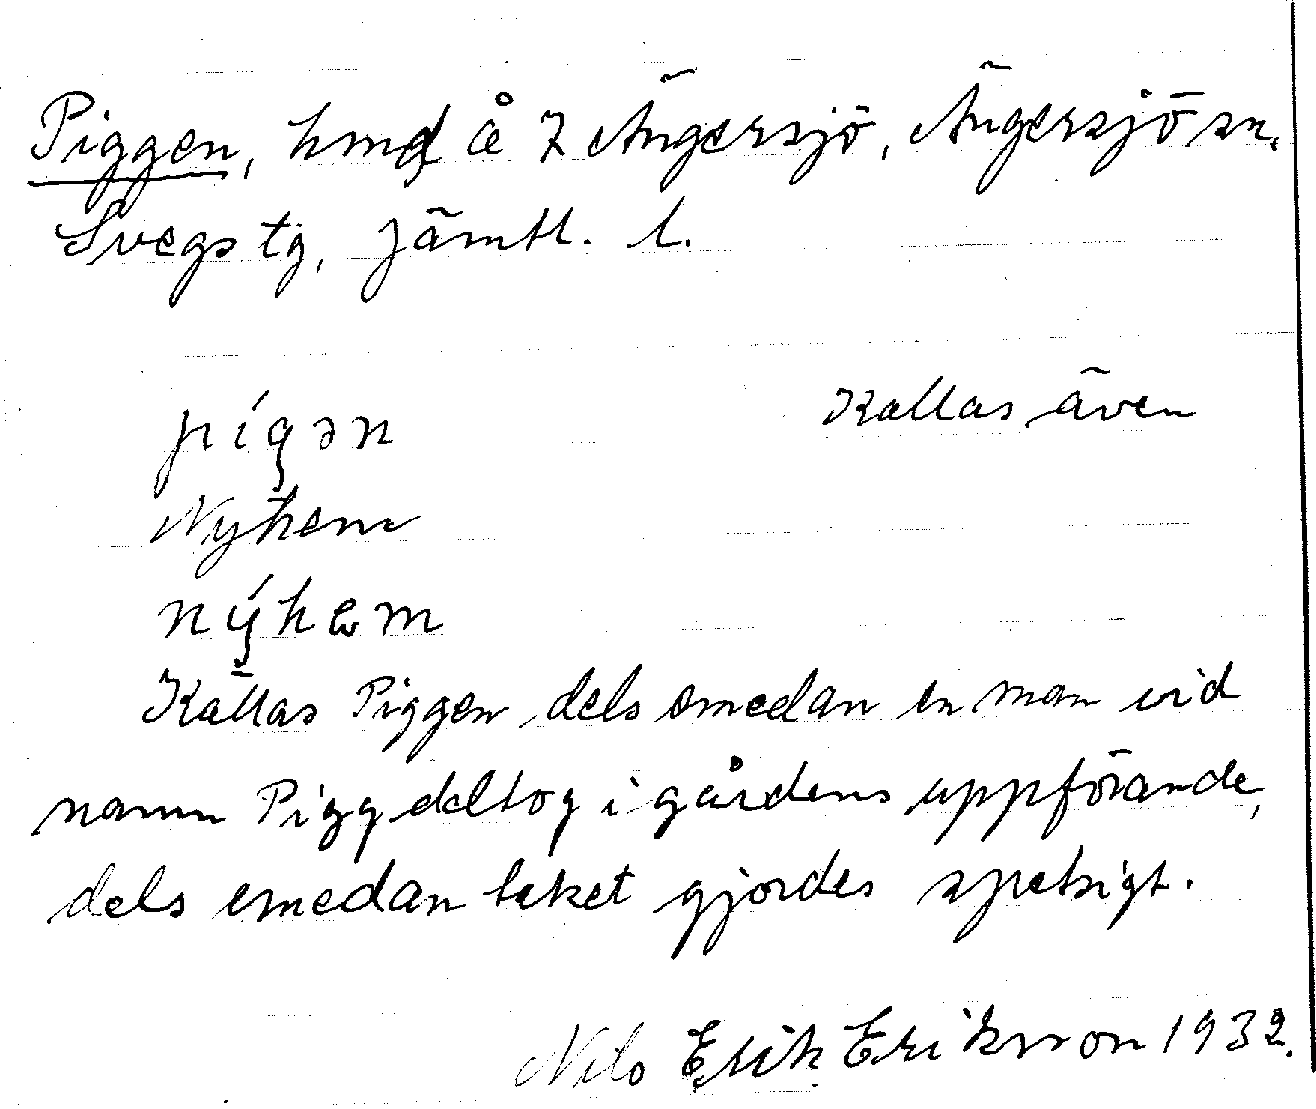 Piggen, hmd å 7 Ängersjö, Ängersjö sn.
Svegs tg, Jämtl. l.
pígən Kallas även
Nyhem
nýhem
Kallas Piggen dels emedan en man vid
namn Pigg deltog i gårdens uppförande,
dels emedan taket gjordes spetsigt.
Nils Erik Eriksson 1932.